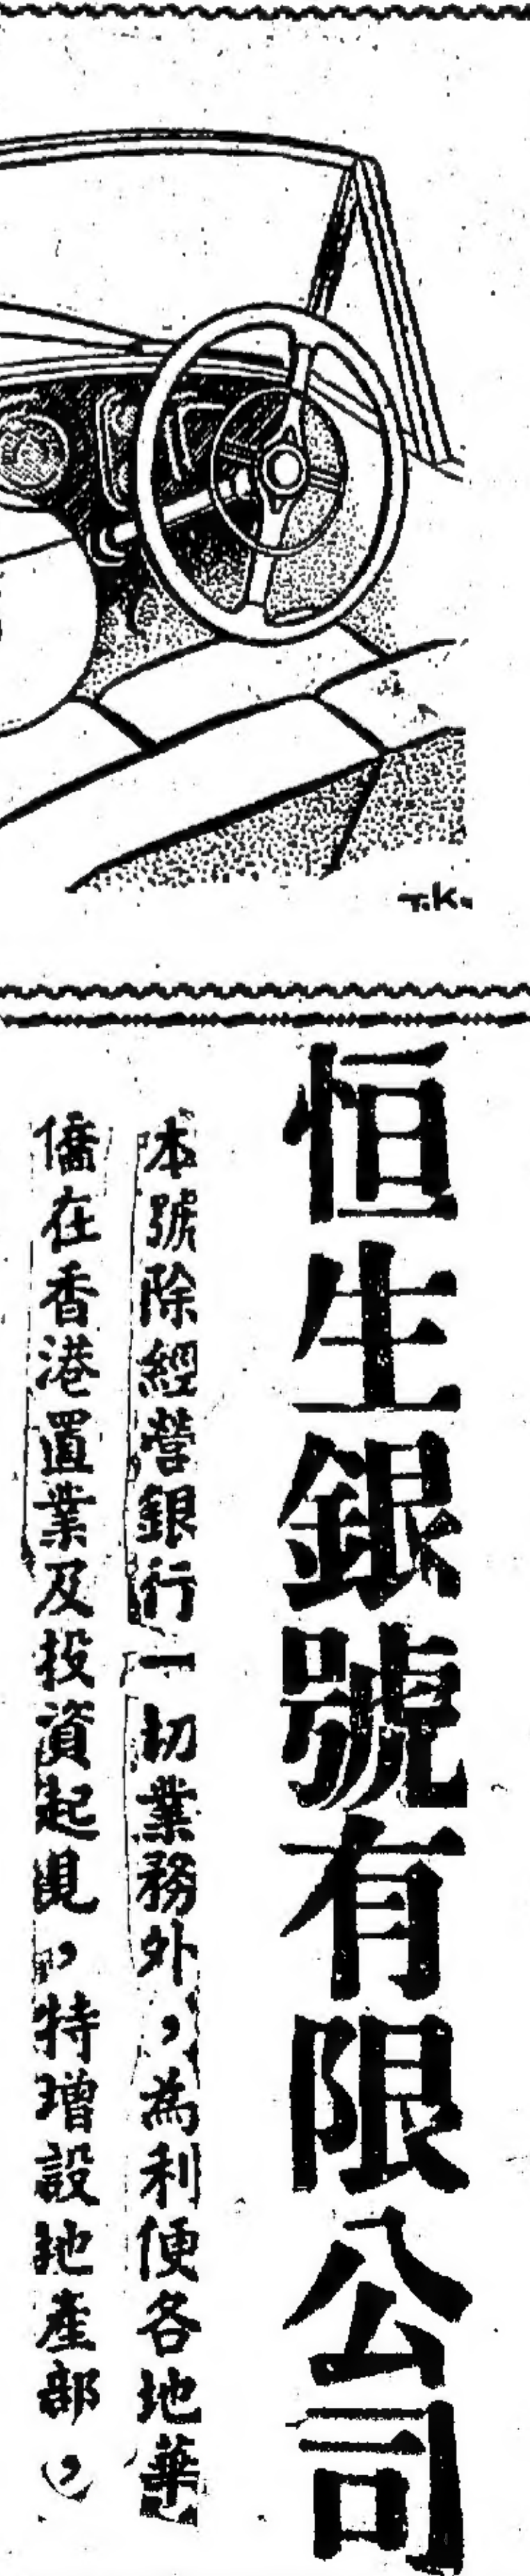 T.K.
恒生銀號有限公司
本號除經營銀行一切業務外，為利便各地華
僑在香港置業及投資起見，特增設地產部，